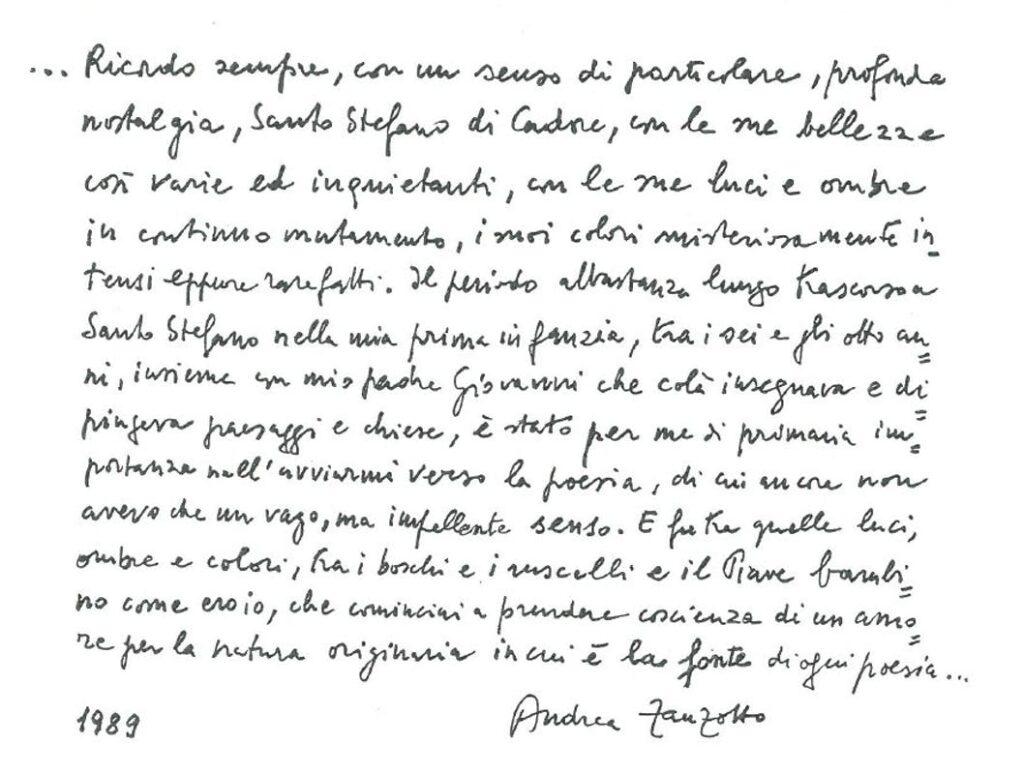 ... Ricordo sempre, con un senso di particolare, profonda
nostalgia, Santo Stefano di Cadore, con le sue bellezze
così varie ed inquietanti, con le sue luci e ombre
in continuo mutamento, i suoi colori misteriosamente in
tensi eppure rarefatti. Il periodo abbastanza lungo trascorso a
Santo Stefano nella mia prima infanzia, tra i sei e gli otto an=
ni, insieme con mio padre Giovanni che colà insegnava e di=
pingeva paesaggi e chiese, è stato per me di primaria im=
portanza nell'avviarmi verso la poesia, di cui ancora non
avevo che un vago, ma impellente senso. E fu tra quelle luci,
ombre e colori, tra i boschi e i ruscelli e il Piave bambi=
no come ero io, che cominciai a prendere coscienza di un amo=
re per la natura originaria in cui è la fonte di ogni poesia...
1989 Andrea Zanzotto